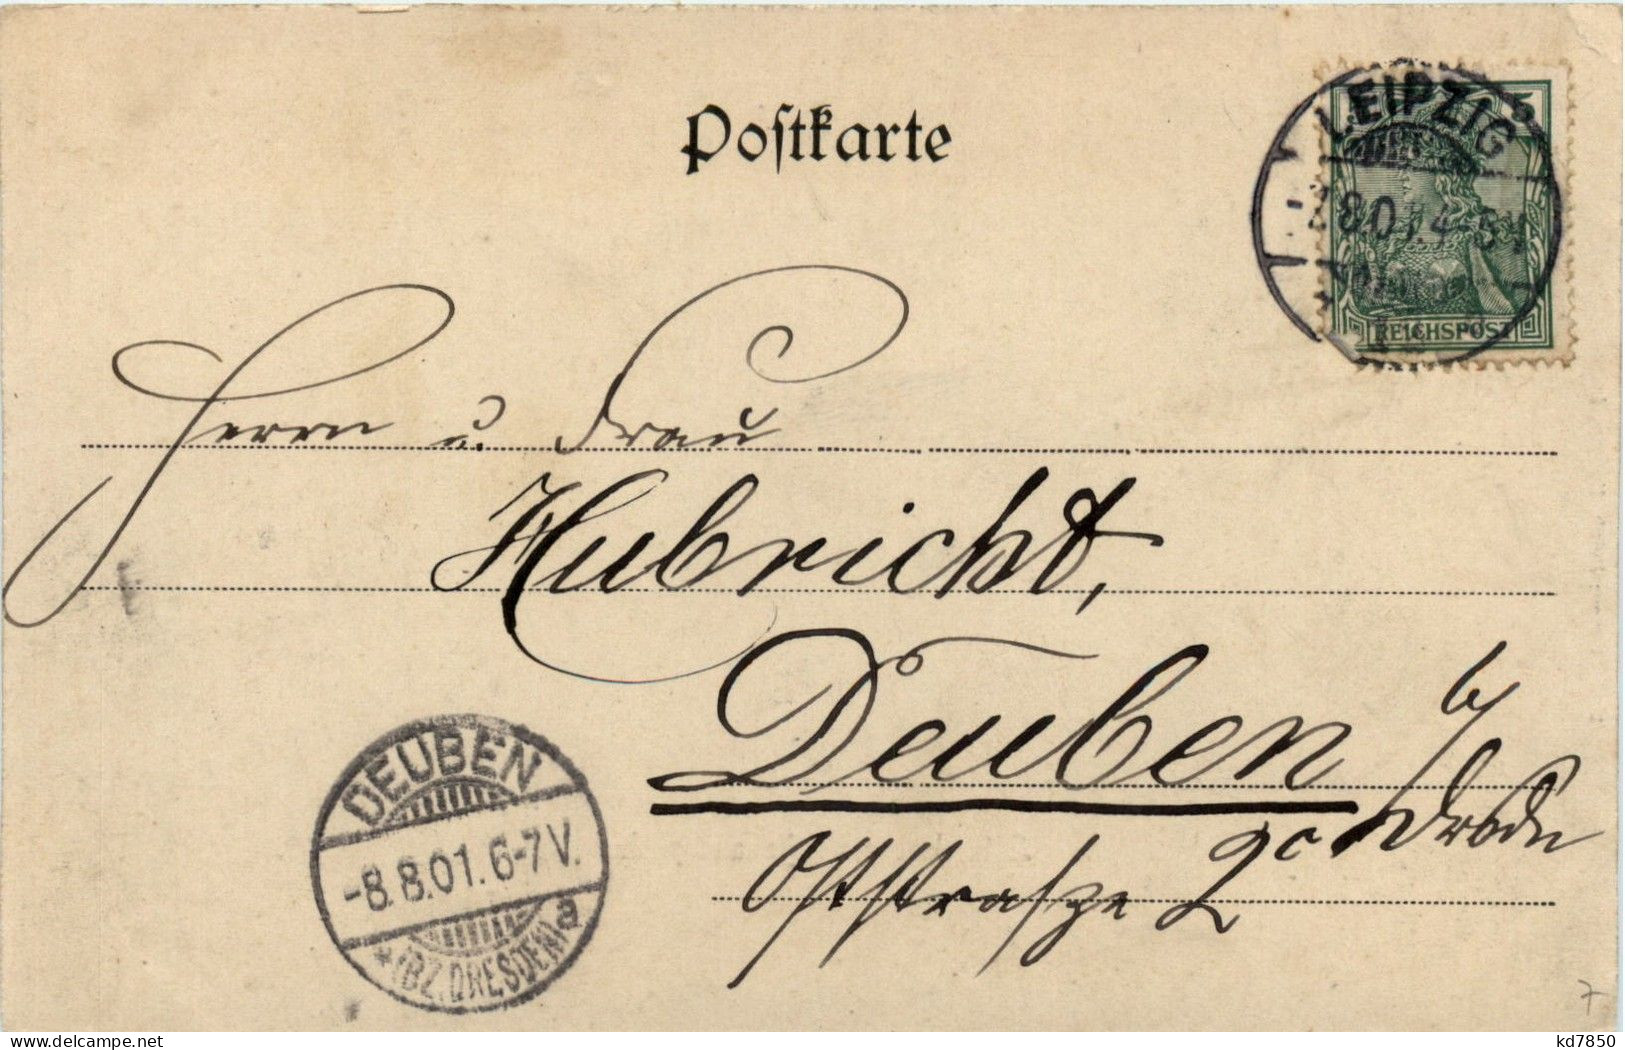 Postkarte
LEIPZIG
5
8.01.4-5
REICHSPOST
Herrn u. Frau
Hubricht,
Deuben b/
Drsdn
Oststraße 2c
DEUBEN
-8.8.01.6-7V.
*(BZ.DRESDEN)a
7
kd7850